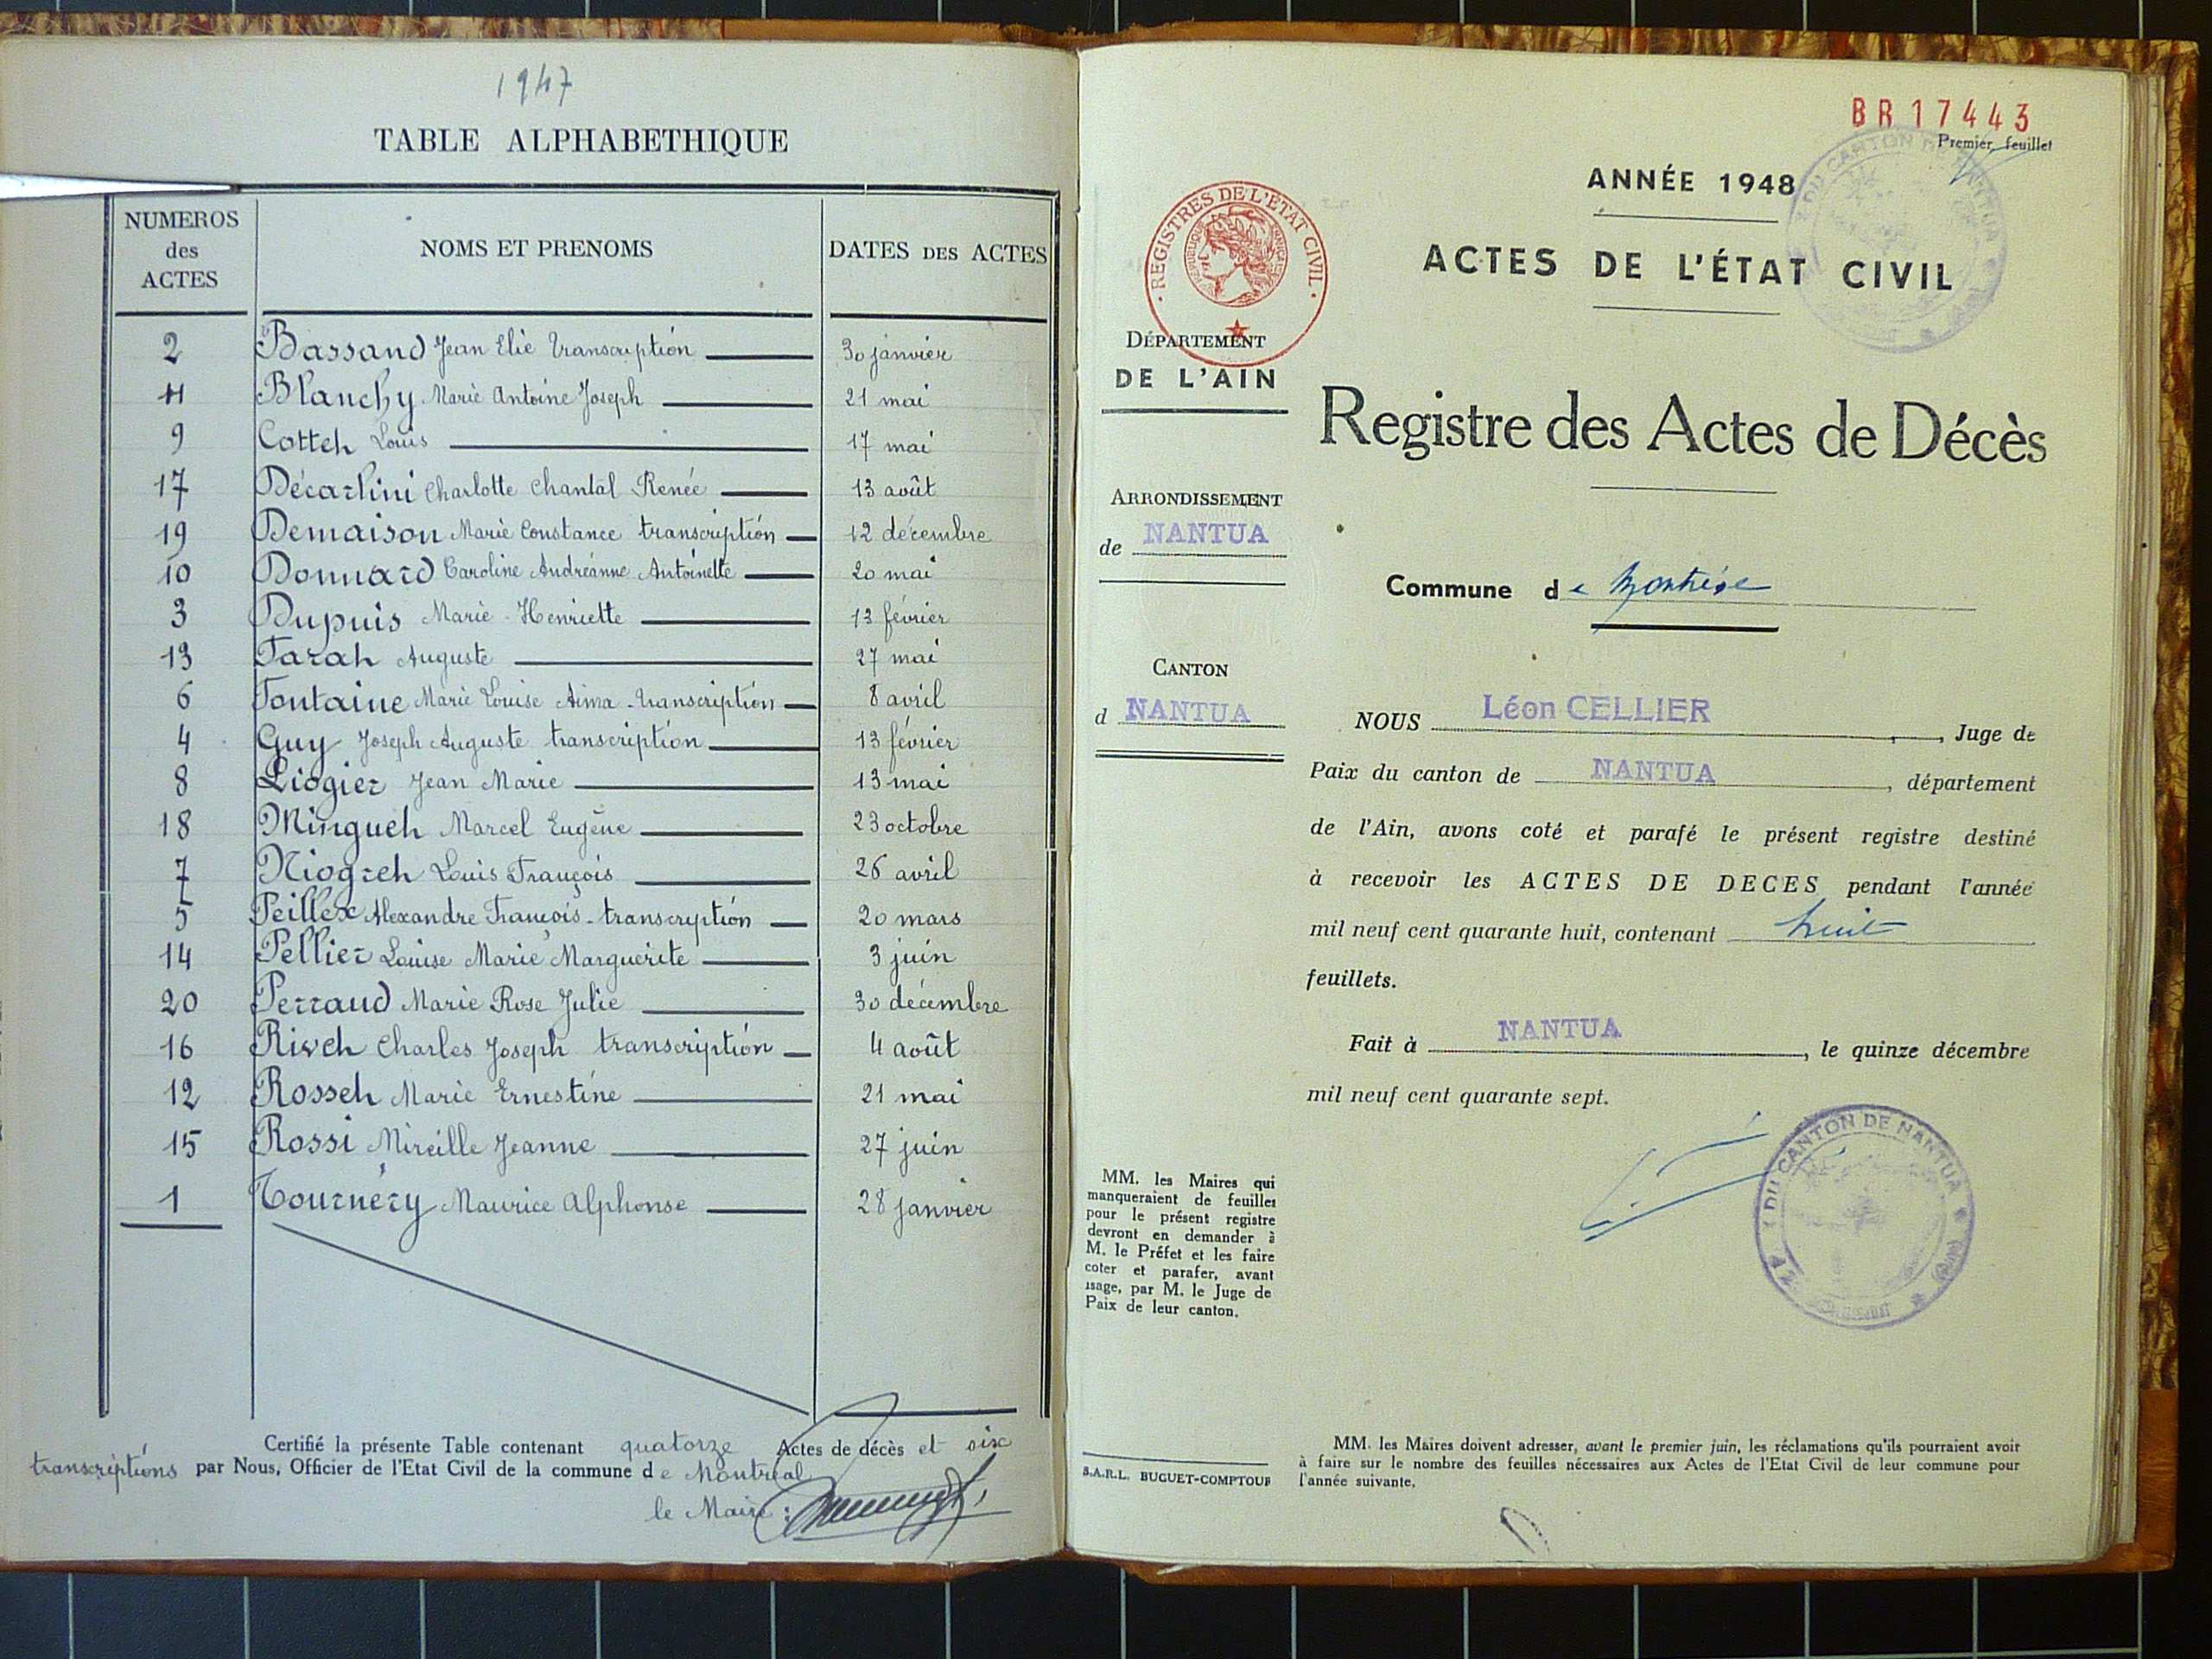 1947
TABLE ALPHABETHIQUE
NUMEROS des ACTES
NOMS ET PRENOMS
DATES DES ACTES
2 Bassand Jean Elie transcription 30 janvier
11 Blanchy Marie Antoine Joseph 21 mai
9 Cotteh Louis 17 mai
17 Décarlini Charlotte Chantal Renée 13 août
19 Demaison Marie Constance transcription 12 décembre
10 Donnard Caroline Andréanne Antoinette 20 mai
3 Dupuis Marie-Henriette 13 février
13 Farah Auguste 27 mai
6 Fontaine Marie Louise Aima - transcription 8 avril
4 Guy Joseph Auguste transcription 13 février
8 Liogier Jean Marie 13 mai
18 Mingueh Marcel Eugène 23 octobre
7 Niogreh Louis François 26 avril
5 Peillex Alexandre François - transcription 20 mars
14 Pellier Louise Marie Marguerite 3 juin
20 Perraud Marie Rose Julie 30 décembre
16 Charles Joseph transcription 4 août
12 Rosseh Marie Ernestine 21 mai
15 Rossi Mireille Jeanne 27 juin
1 Tournéry Maurice Alphonse 28 janvier
Certifié la présente Table contenant quatorze Actes de décès et six
transcriptions par Nous, Officier de l'Etat Civil de la commune de Montréal
le Maire :
BR 17443
Premier feuillet
ANNÉE 1948
ACTES DE L'ÉTAT CIVIL
REGISTRES DE L'ÉTAT CIVIL
DÉPARTEMENT
DE L'AIN
Registre des Actes de Décès
ARRONDISSEMENT
de NANTUA
Commune de Montréal
CANTON
d NANTUA
NOUS Léon CELLIER, Juge de
Paix du canton de NANTUA, département
de l'Ain, avons coté et parafé le présent registre destiné
à recevoir les ACTES DE DECES pendant l'année
mil neuf cent quarante huit, contenant huit
feuillets.
Fait à NANTUA, le quinze décembre
mil neuf cent quarante sept.
DU CANTON DE NANTUA
MM. les Maires qui
manqueraient de feuilles
pour le présent registre
devront en demander à
M. le Préfet et les faire
coter et parafer, avant
usage, par M. le Juge de
Paix de leur canton.
S.A.R.L. BUGUET-COMPTOUR
MM. les Maires doivent adresser, avant le premier juin, les réclamations qu'ils pourraient avoir
à faire sur le nombre des feuilles nécessaires aux Actes de l'Etat Civil de leur commune pour
l'année suivante.